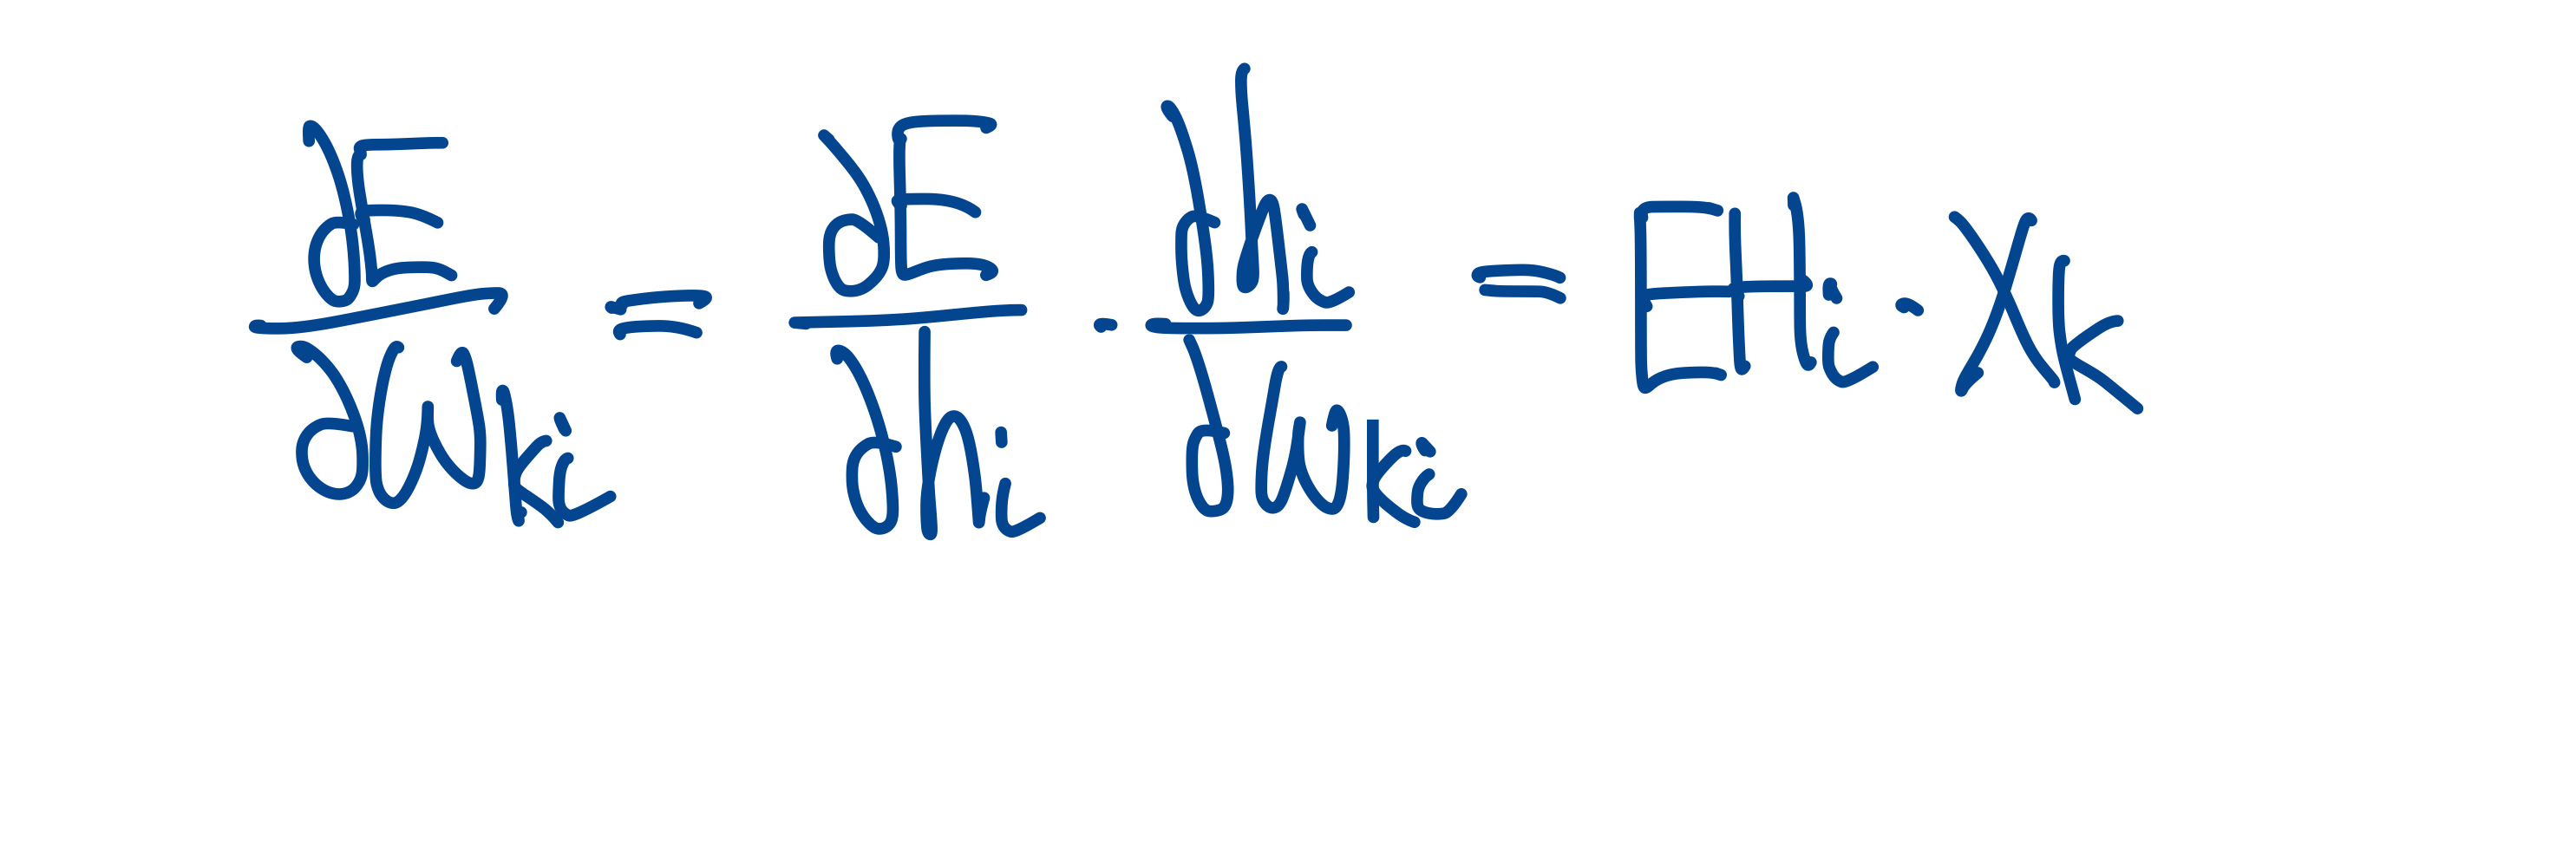 ∂E/∂w_ki = ∂E/∂h_i · ∂h_i/∂w_ki = EH_i · x_k